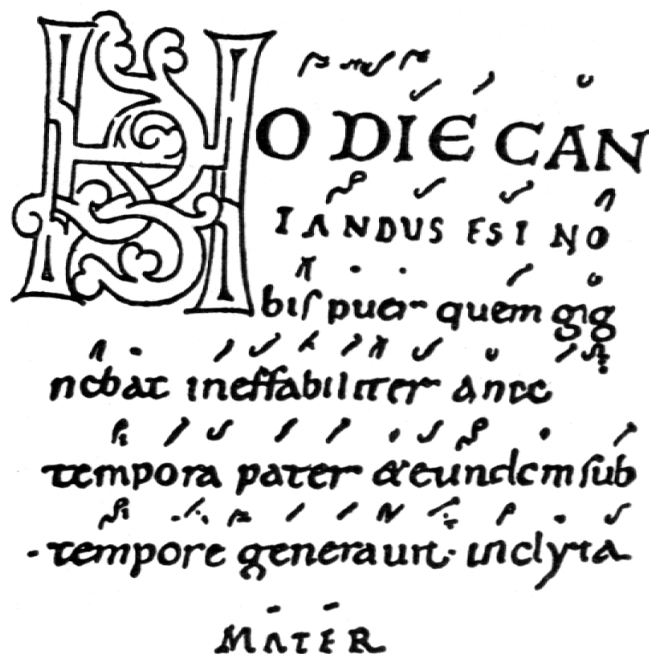 HODIE CAN
TANDUS EST NO
bis puer quem gig
nebat ineffabiliter ante
tempora pater & eundem sub
·tempore generauit· inclyta
MATER